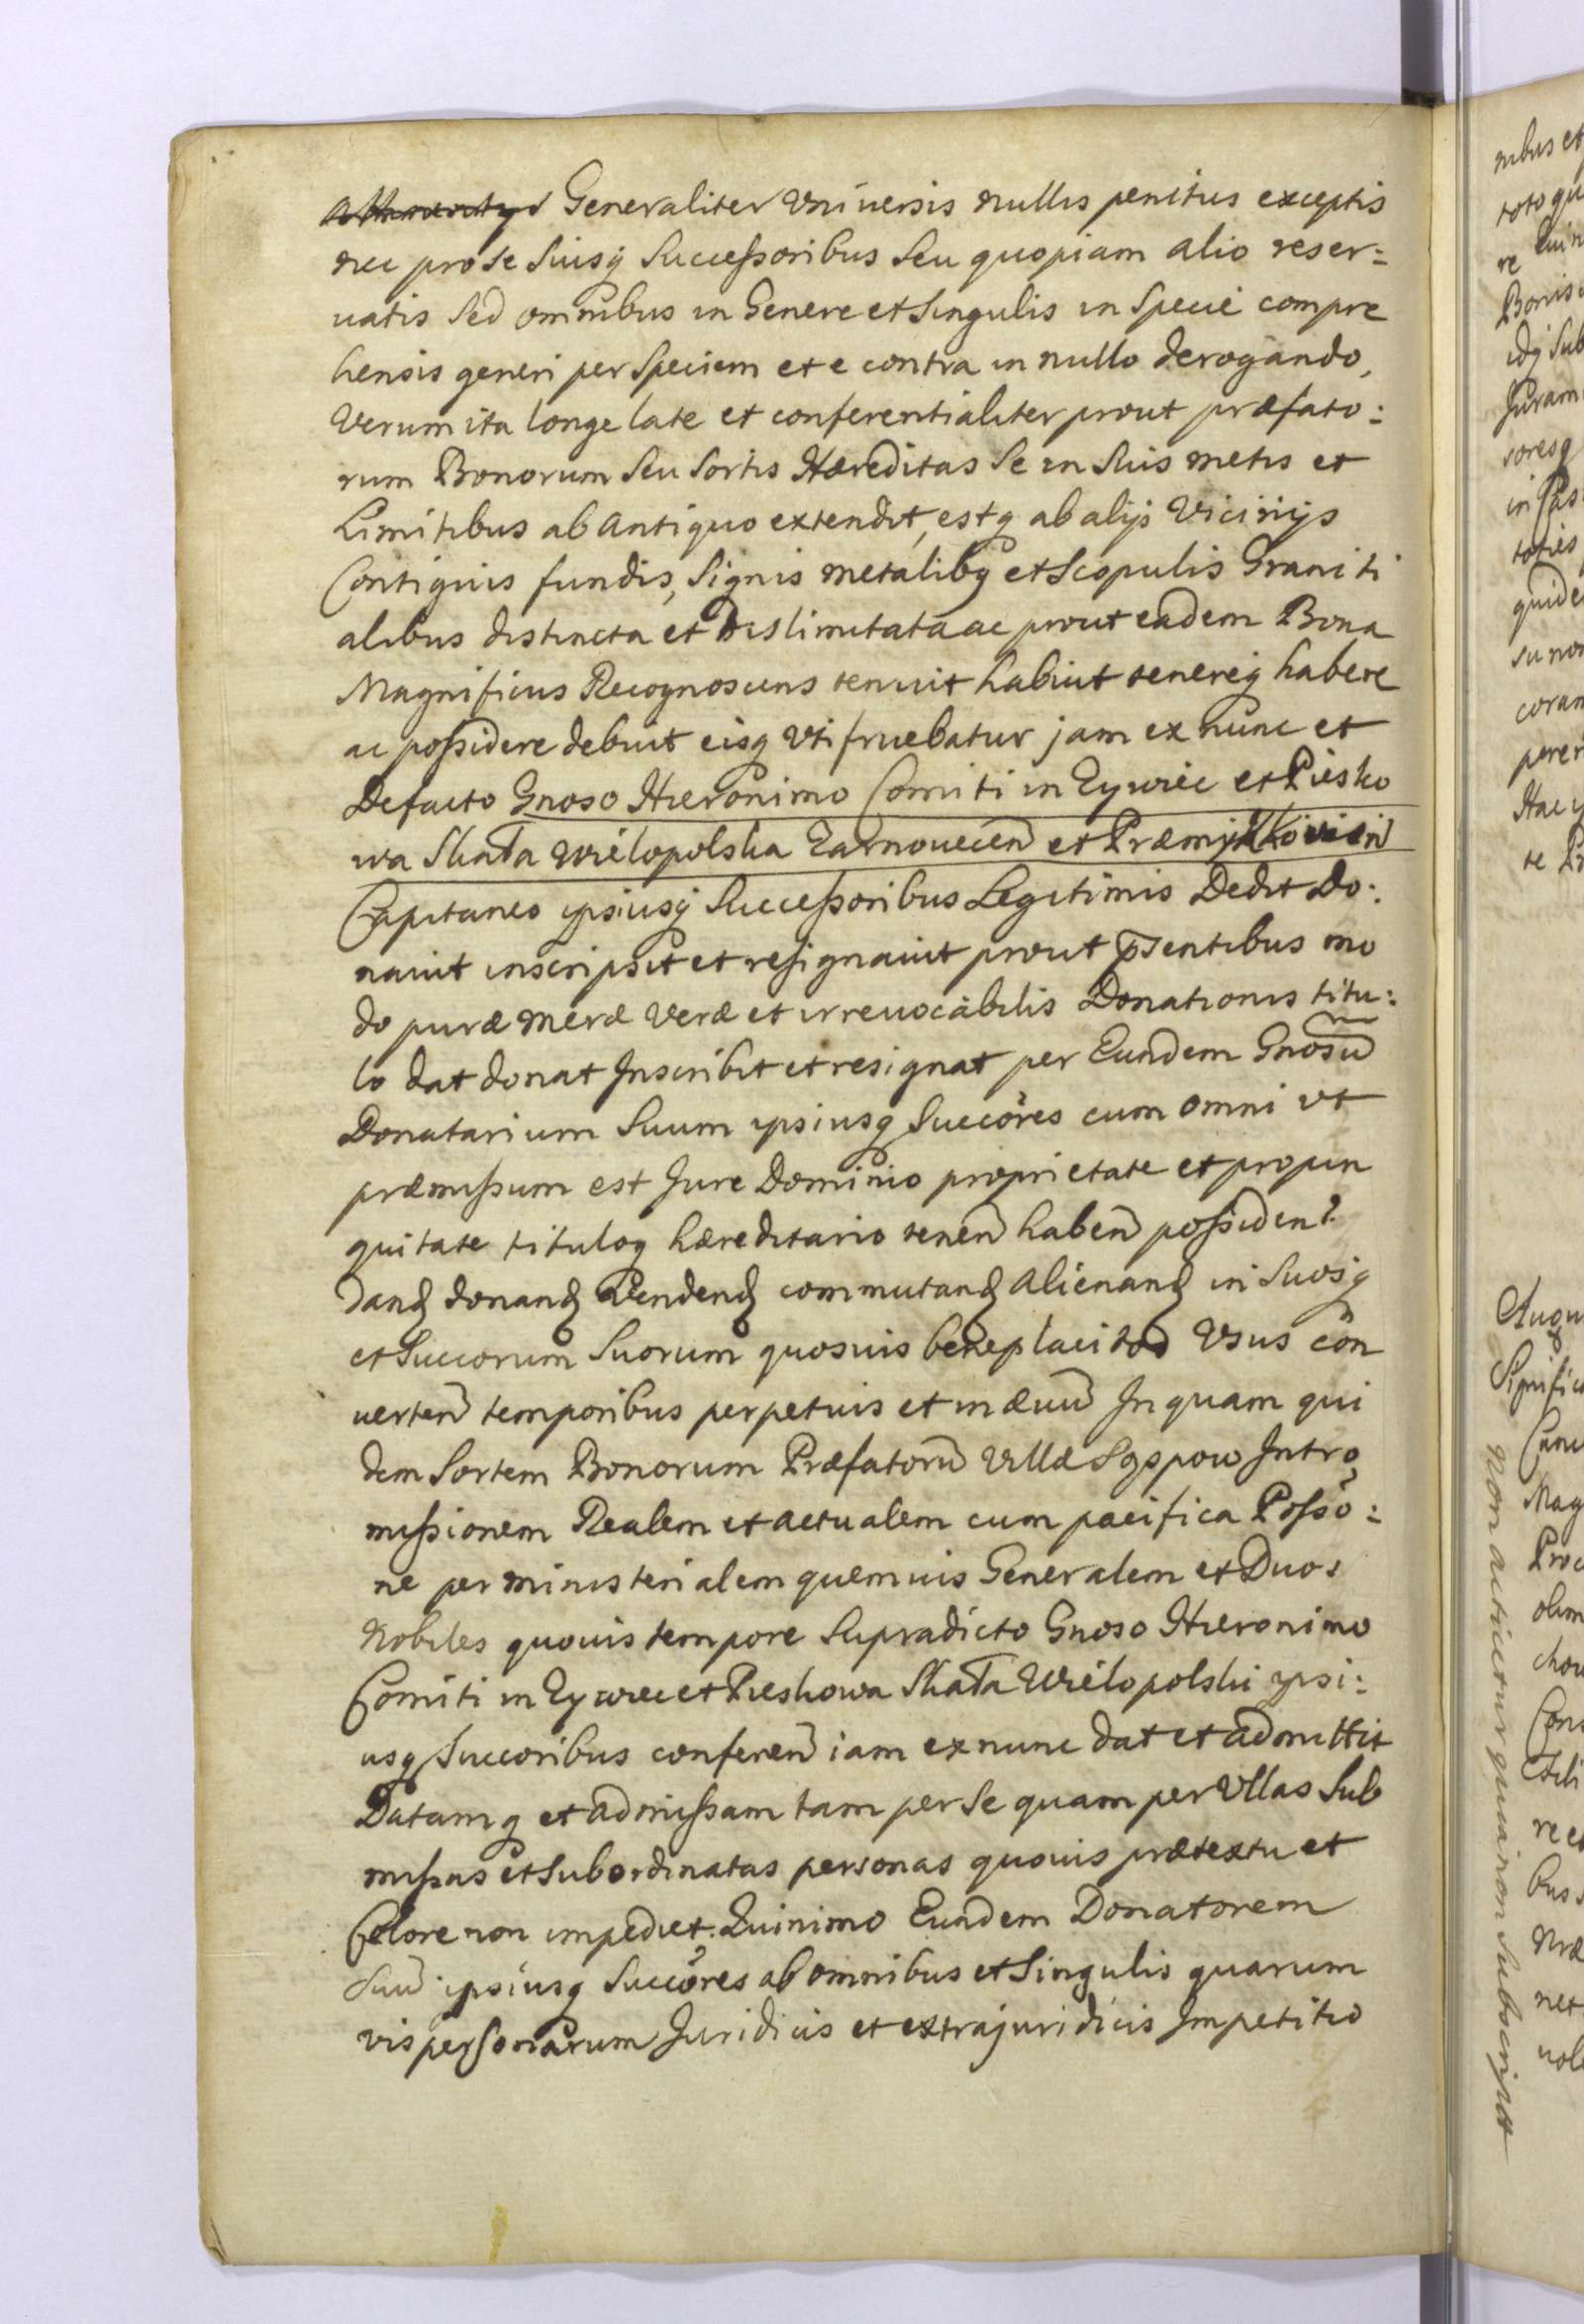 attinentys Generaliter Vniuersis nullis penitus exceptis
nec pro se suisq Successoribus seu quopiam alio reser:
uatis sed omnibus in Genere et singulis in specie compre
hensis generi per speciem et e contra in nullo derogando,
Verum ita longe late et conferentialiter prout præfato:
rum Bonorum seu sortis Hæreditas se in suis metis et
Limitibus ab antiquo extendit, estq ab alijs Vicinijs
Contiguis fundis, signis metalibq et scopulis Graniti
alibus distincta et dislimitata ac prout eadem Bona
Magnificus Recognoscens tenuit habuit tenereq habere
ac possidere debuit eisq Vti fruebatur jam ex nunc et
Defacto Gnoso Hieronimo Comiti in Zywiec et Piesko
wa Skała Wielopolska Zarnouecen et Præmy
Capitaneo ipsiusq Successoribus Legitimis Dedit Do:
nauit inscripsit et resignauit prout psentibus mo
do puræ meræ Veræ et irreuocabilis Donationis titu:
lo dat donat Inscribit et resignat per Eundem Gnosu
Donatarium Suum ipsiusq Succores cum omni vt
præmissum est Jure Dominio proprietate et propin
quitate tituloq hæreditario tenen haben possiden
dand donand Vendend commutand alienand in Suosq
et Succorum Suorum quosuis beneplacitos Vsus con
uerten temporibus perpetuis et in æuu In quam qui
dem Sortem Bonorum Præfatoru Villæ Sgspow Intro
missionem Realem et actualem cum pacifica Posso:
ne per ministerialem quemuis Generalem et Duos
Nobiles quouis tempore Supradicto Gnoso Hieronimo
Comiti in Zywiec et Pieskowa Skała Wielopolski ipsi:
usq Succoribus conferen iam ex nunc dat et admittit
Datamq et admissam tam per se quam per Vllas Sub
missas et Subordinatas personas quouis prætextu et
Colore non impediet. Quinimo Eundem Donatorem
Suu ipsiusq Succores ab omnibus et Singulis quarum
vis personarum Juridicis et extrajuridicis Impetitio
mbus et
toto qu
re
Bonis
idq Sub
Juram
soresq
in Cas
toties
quide
su non
coram
perem
Hac
te Pr
Augu
Signific
Cunc
Mag
Proc
olim
chow
Cons
re et
bus
Næ
net
uole
Non acticetur quia non Subscripsit